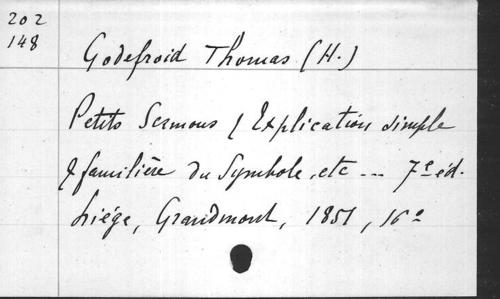 202
148
Godefroid Thomas (H.)
Petits Sermons / Explication simple
& familière du Symbole, etc --- 7e éd.
Liége, Grandmont, 1851, 16o